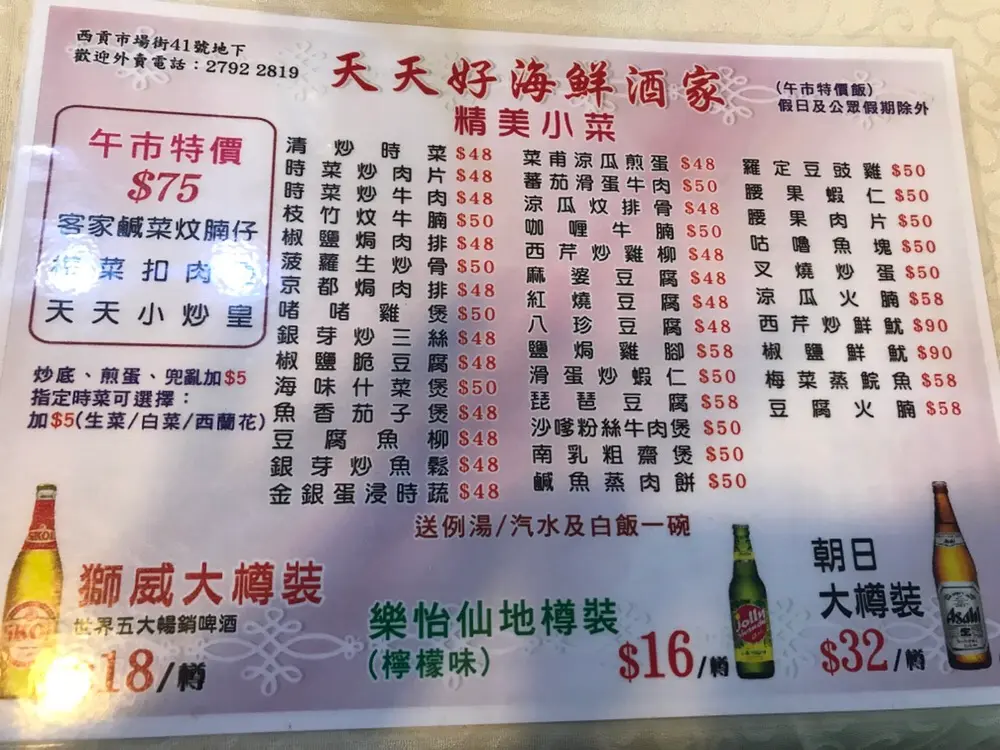 西貢市場街41號地下
歡迎外賣電話：2792 2819
天天好海鮮酒家
(午市特價飯)
假日及公眾假期除外
精美小菜
午市特價
$75
客家鹹菜炆腩仔
菜扣肉
天天小炒皇
炒底、煎蛋、兜亂加$5
指定時菜可選擇：
加$5(生菜/白菜/西蘭花)
清炒時菜 $48
時菜炒肉片 $48
時菜炒牛肉 $48
枝竹炆牛腩 $50
椒鹽焗肉排 $48
菠蘿生炒骨 $50
京都焗肉排 $48
啫啫雞煲 $50
銀芽炒三絲 $48
椒鹽脆豆腐 $48
海味什菜煲 $50
魚香茄子煲 $48
豆腐魚柳 $48
銀芽炒魚鬆 $48
金銀蛋浸時蔬 $48
菜甫涼瓜煎蛋 $48
蕃茄滑蛋牛肉 $50
涼瓜炆排骨 $48
咖喱牛腩 $50
西芹炒雞柳 $48
麻婆豆腐 $48
紅燒豆腐 $48
八珍豆腐 $48
鹽焗雞腳 $58
滑蛋炒蝦仁 $50
琵琶豆腐 $58
沙嗲粉絲牛肉煲 $50
南乳粗齋煲 $50
鹹魚蒸肉餅 $50
羅定豆豉雞 $50
腰果蝦仁 $50
腰果肉片 $50
咕嚕魚塊 $50
叉燒炒蛋 $50
涼瓜火腩 $58
西芹炒鮮魷 $90
椒鹽鮮魷 $90
梅菜蒸鯇魚 $58
豆腐火腩 $58
送例湯/汽水及白飯一碗
獅威大樽裝
世界五大暢銷啤酒
$18/樽
樂怡仙地樽裝
(檸檬味)
$16/樽
朝日
大樽裝
$32/樽
SKOL
Jolly
Shandy
Asahi